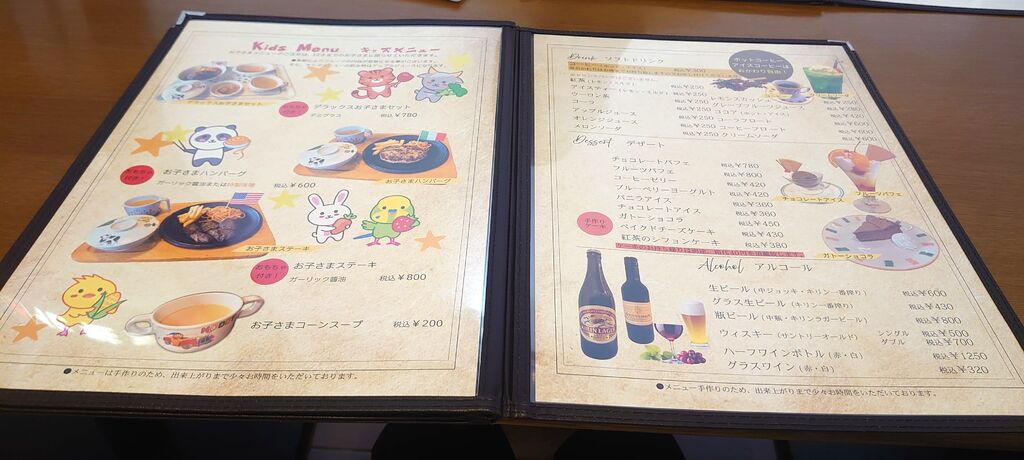 Kids Menu キッズメニュー
デラックスお子さまセット
おもちゃ付き！
デラックスお子さまセット
デミグラス 税込¥780
おもちゃ付き！
お子さまハンバーグ
ガーリック醤油または特製味噌 税込¥600
お子さまハンバーグ
お子さまステーキ
おもちゃ付き！
お子さまステーキ
ガーリック醤油 税込¥800
お子さまコーンスープ 税込¥200
●メニューは手作りのため、出来上がりまで少々お時間をいただいております。
Drink ソフトドリンク
ホットコーヒー
アイスコーヒーは
おかわり自由！
アイスティー(レモン・ミルク) 税込¥250
ウーロン茶 税込¥250
コーラ 税込¥250
アップルジュース 税込¥250
オレンジジュース 税込¥250
メロンソーダ 税込¥250
レモンスカッシュ
グレープフルーツジュース
ココア(ホット・アイス)
コーラフロート
コーヒーフロート
クリームソーダ
Dessert デザート
チョコレートパフェ 税込¥780
フルーツパフェ 税込¥800
コーヒーゼリー 税込¥420
ブルーベリーヨーグルト 税込¥420
バニラアイス 税込¥360
チョコレートアイス 税込¥360
手作りケーキ
ガトーショコラ 税込¥450
ベイクドチーズケーキ 税込¥430
紅茶のシフォンケーキ 税込¥380
チョコレートアイス
フルーツパフェ
ガトーショコラ
Alcohol アルコール
生ビール(中ジョッキ・キリン一番搾り) 税込¥600
グラス生ビール(キリン一番搾り) 税込¥430
瓶ビール(中瓶・キリンラガービール) 税込¥800
ウィスキー(サントリーオールド) シングル 税込¥500
ダブル 税込¥700
ハーフワインボトル(赤・白) 税込¥1250
グラスワイン(赤・白) 税込¥320
●メニュー手作りのため、出来上がりまで少々お時間をいただいております。